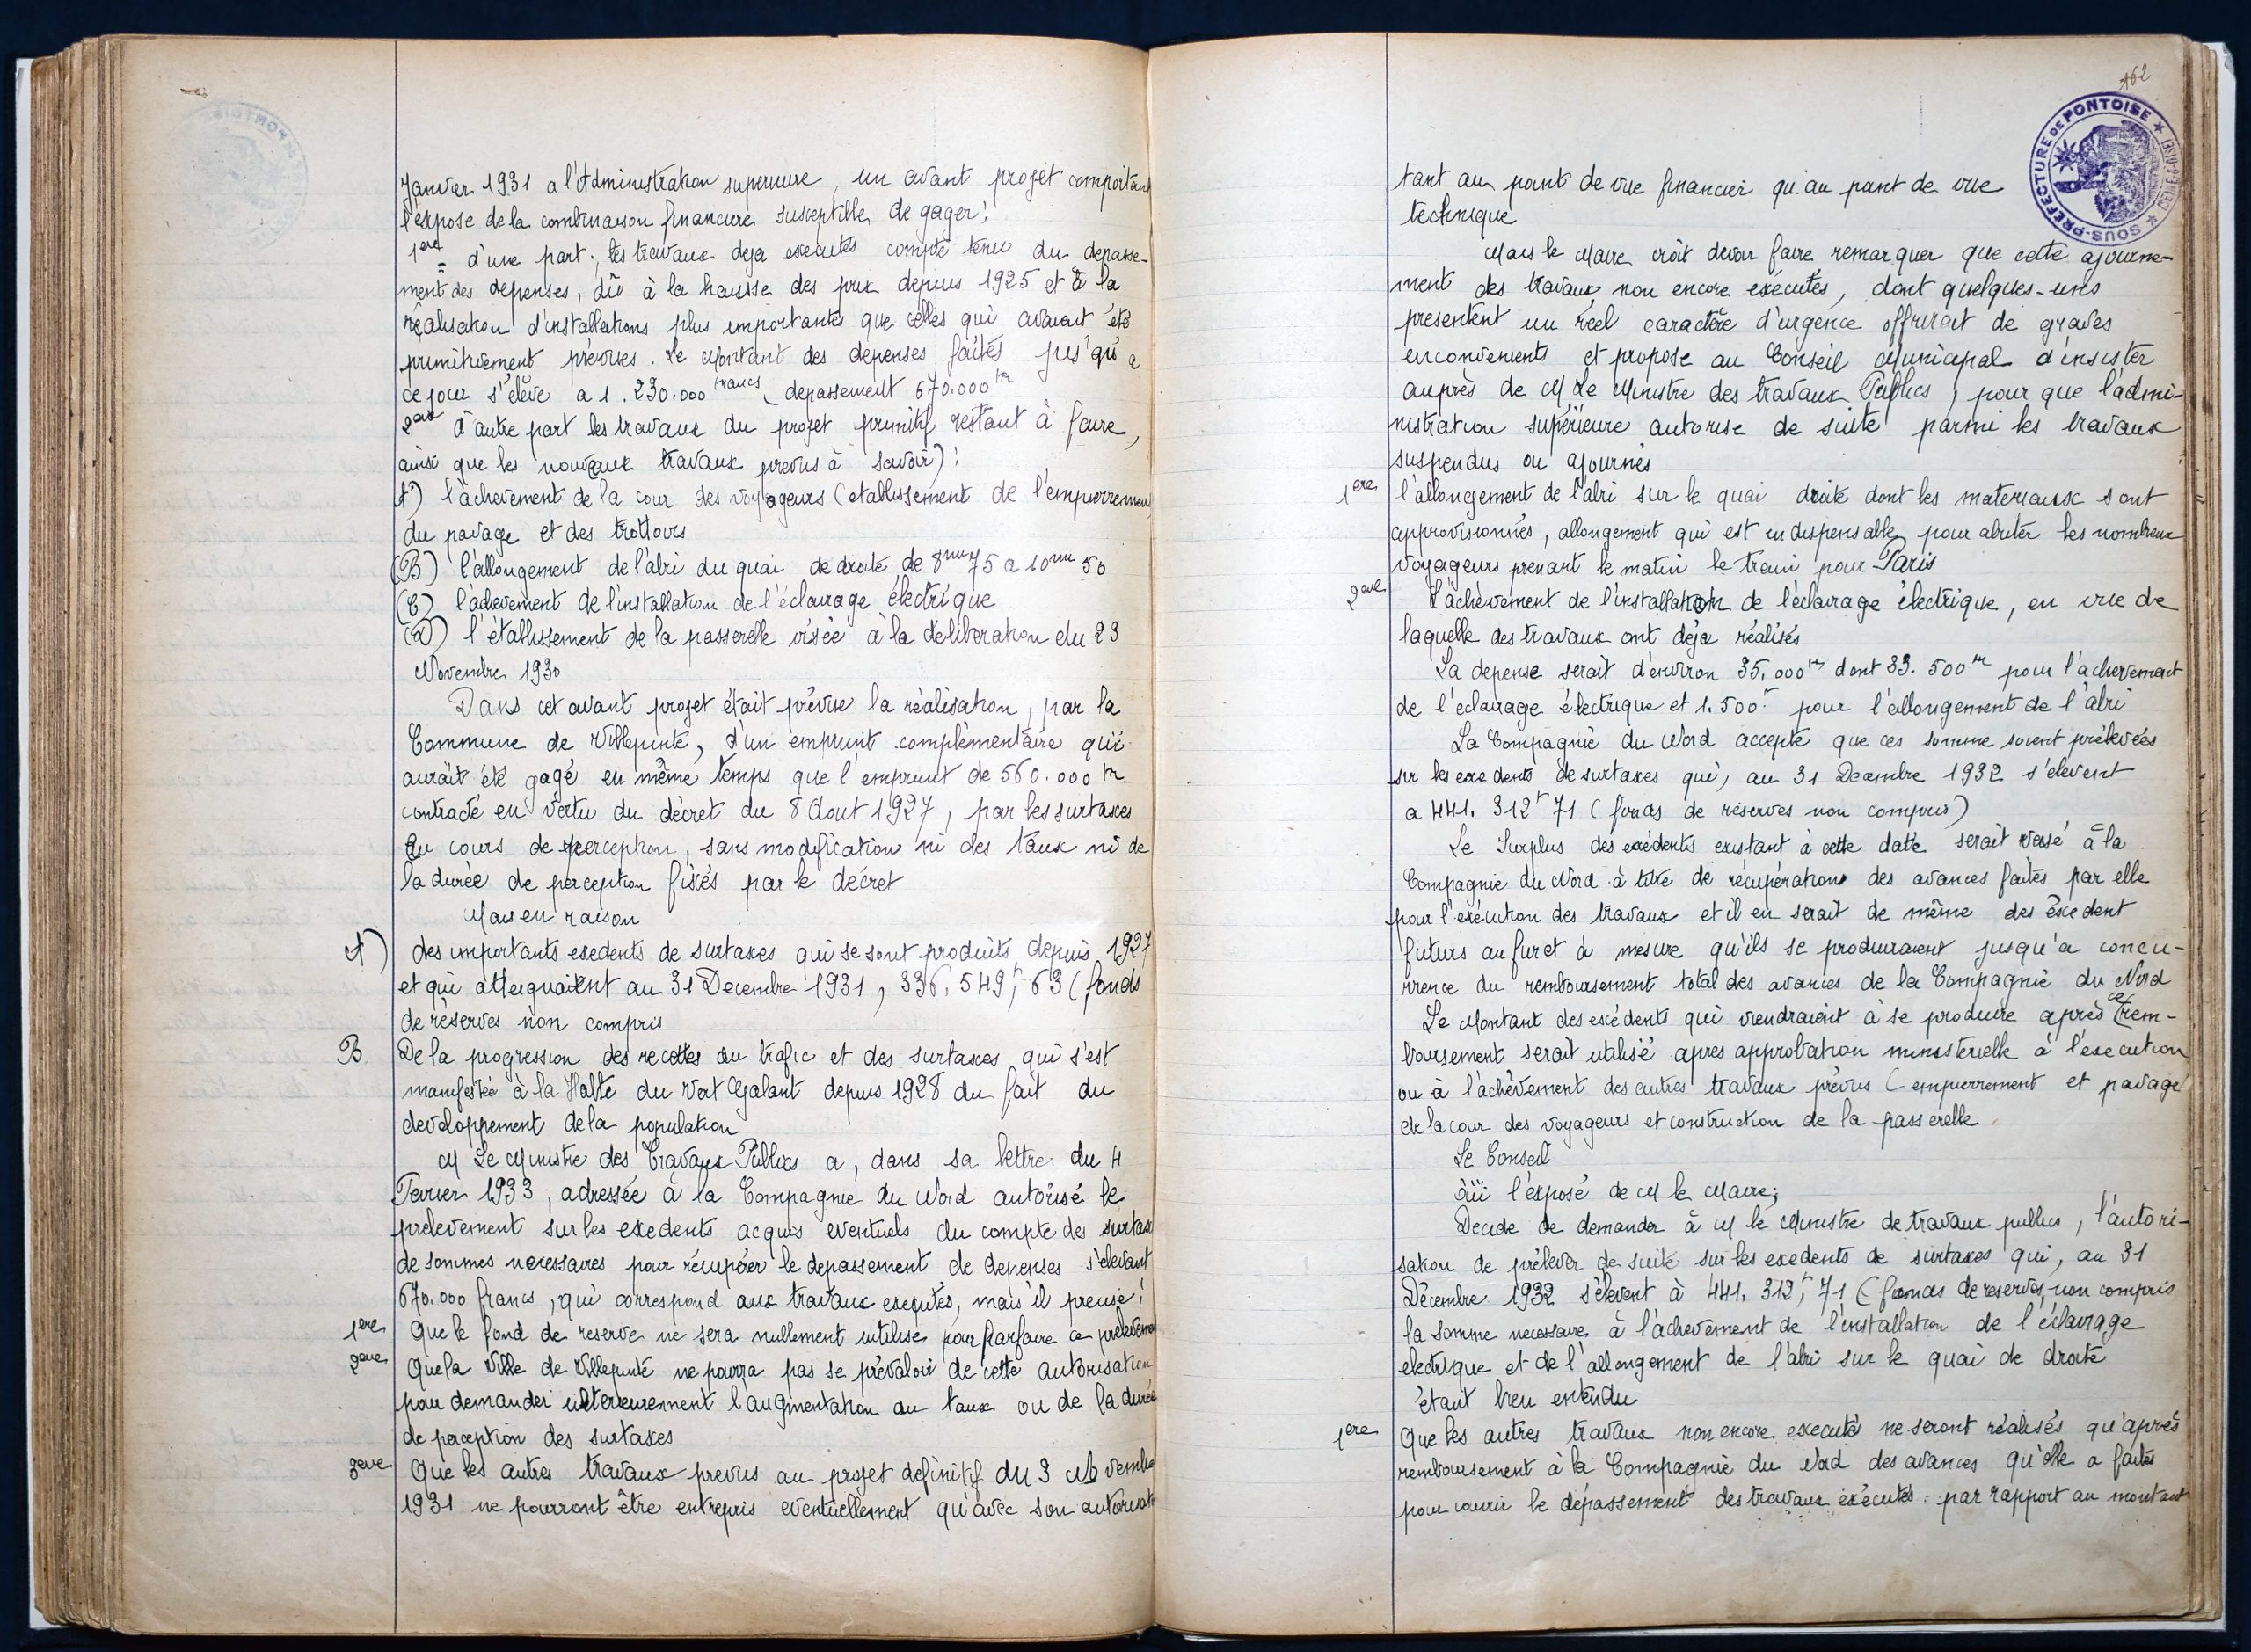 Janvier 1931 a l'Administration superieure, un avant projet comportant
l'expose de la combinaison financiere susceptible de gager:
1ere d'une part; les travaux deja executés compte tenu du depasse-
ment des depenses, dû à la hausse des prix depuis 1925 et à la
réalisation d'installations plus importantes que celles qui avaient été
primitivement prévues. Le Montant des dépenses faites jusqu'à
ce jour s'élève a 1.230.000 francs, depassement 670.000 frs
2eme d'autre part les travaux du projet primitif restant à faire,
ainsi que les nouveaux travaux prevus à savoir):
A) l'achevement de la cour des voyageurs (etablissement de l'empierrement
du pavage et des trottoirs
(B) l'allongement de l'abri du quai de droite de 8mm75 a 10mm 50
(C) l'achevement de l'installation de l'éclairage électrique
(D) l'établissement de la passerelle visée à la déliberation du 23
Novembre 1930
Dans cet avant projet était prévue la réalisation, par la
Commune de Villepinte, d'un emprunt complémentaire qui
aurait été gagé en même temps que l'emprunt de 560.000 frs
contracté en vertu du décret du 8 Aout 1927, par les surtaxes
en cours de perception, sans modification ni des taux ni de
la durée de perception fixés par le décret
Mais en raison
A) des importants exedents de surtaxes qui se sont produits depuis 1927
et qui atteignaient au 31 Decembre 1931, 336.549f,63 (fonds
de réserves non compris
B. De la progression des recettes du trafic et des surtaxes qui s'est
manifestée à la Halte du Vert Galant depuis 1928 du fait du
developpement de la population
M Le Ministre des Travaux Publics a, dans sa lettre du 4
Fevrier 1933, adressée à la Compagnie du Nord autorisé le
prelevement sur les exedents acquis eventuels du compte des surtaxes
de sommes necessaires pour récupérer le depassement de depenses s'elevant
670.000 francs, qui correspond aux travaux executés, mais il precise:
1ere Que le fond de reserve ne sera nullement utilise pour parfaire ce prelevement
2eme Que la Ville de Villepinte ne pourra pas se prévaloir de cette autorisation
pour demander ulterieurement l'augmentation du taux ou de la durée
de perception des surtaxes
3eme Que les autres travaux prevus au projet definitif du 3 Novembre
1931 ne pourront être entrepris eventuellement qu'avec son autorisat
162
SOUS-PREFECTURE DE PONTOISE
tant au point de vue financier qu'au point de vue
technique
Mais le Maire croit devoir faire remarquer que cette ajourne-
ment des travaux non encore exécutés, dont quelques-uns
presentent un réel caractère d'urgence offrirait de graves
inconvenients et propose au Conseil Municipal d'insister
auprès de M Le Ministre des travaux Publics, pour que l'admi-
nistration supérieure autorise de suite parmi les travaux
suspendus ou ajournés
1ere l'allongement de l'abri sur le quai droite dont les materiaux sont
approvisionnés, allongement qui est indispensable, pour abriter les nombreux
voyageurs prenant le matin le train pour Paris
2eme L'achèvement de l'installation de l'éclairage électrique, en vue de
laquelle des travaux ont déja réalisés
La depense serait d'environ 35,000 frs dont 33.500 frs pour l'achevement
de l'éclairage électrique et 1.500f pour l'allongement de l'abri
La Compagnie du Nord accepte que ces somme soient prélevées
sur les exedents de surtaxes qui, au 31 Decembre 1932 s'elevent
a 441.312f71 (fonds de réserves non compris)
Le Surplus des exédents existant à cette date serait versé à la
Compagnie du Nord à titre de récupérations des avances faites par elle
pour l'exécution des travaux et il en serait de même des éxcedent
futurs au fur et à mesure qu'ils se produiraient jusqu'a concu-
rrence du remboursement total des avances de la Compagnie du Nord
Le Montant des excédents qui viendraient à se produire après ce rem-
boursement serait utilisé apres approbation ministerielle à l'execution
ou à l'achèvement des autres travaux prévus (empierrement et pavage
de la cour des voyageurs et construction de la passerelle
Le Conseil
Ouï l'exposé de M le Maire;
Decide de demander à M le Ministre de travaux publics, l'autori-
sation de prélever de suite sur les exedents de surtaxes qui, au 31
Décembre 1932 s'élevent à 441.312f,71 (fonds de reserves non compris
la somme necessaire à l'achevement de l'installation de l'éclairage
electrique et de l'allongement de l'abri sur le quai de droite
étant bien entendu
1ere Que les autres travaux non encore executés ne seront réalisés qu'après
remboursement à la Compagnie du Nord des avances qu'elle a faites
pour couvrir le dépassement des travaux exécutés: par rapport au montant